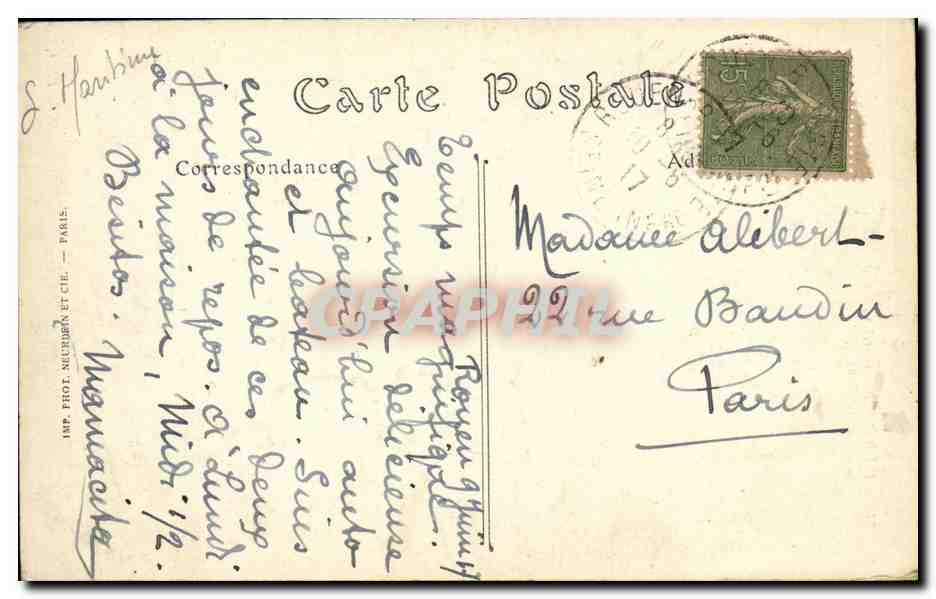 S. Maritime
Carte Postale
Correspondance
15c
Royan 9 Juin 17
Temps magnifique.
Excursion délicieuse
aujourd'hui auto
et bateau. Suis
enchantée de ces deux
jours de repos. A Lundi
à la maison, Midi 1/2
Bésitos. Mamacita
Madame Alibert
22 rue Baudin
Paris
IMP. PHOT. NEURDEIN ET CIE. — PARIS.
CPAPHIL